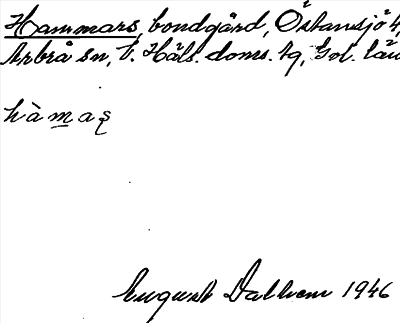 Hammars, bondgård, Östansjö 4,
Arbrå sn, V. Häls. doms. tg, Gvl. län
hàmaș
August Dalhem 1946